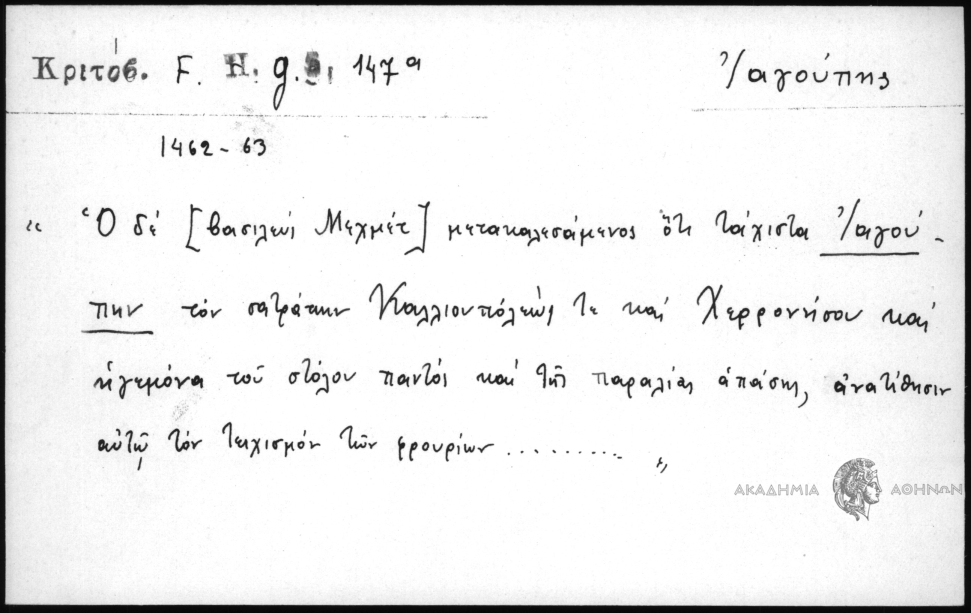 Κριτόβ. F. H. g. 5, 147ª Ἰαγούπης
1462 - 63
“ Ὁ δέ [βασιλεύς Μεχμέτ] μετακαλεσάμενος ὅτι τάχιστα Ἰαγού-
πην τόν σατράπην Καλλιουπόλεώς τε καί Χερρονήσου καί
ἡγεμόνα τοῦ στόλου παντός καί τῆς παραλίας ἁπάσης, ἀνατίθησιν
αὐτῷ τόν τειχισμόν τῶν φρουρίων .......... „
ΑΚΑΔΗΜΙΑ ΑΘΗΝΩΝ